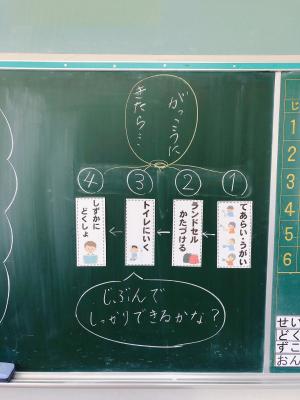 がっこうに
きたら…
①
てあらい・うがい
②
ランドセル
かたづける
③
トイレにいく
④
しずかに
どくしょ
じぶんで
しっかりできるかな?
じ
1
2
3
4
5
6
せい
どく
ずこ
おん